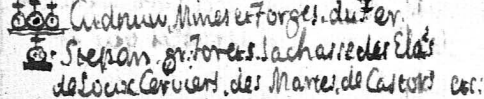 Cudnuw, Mines et Forges, du Fer.
Stepan. gr. Forets. la chasse des Elās
de Loux Cerviers, des Martes, de Castors etc: